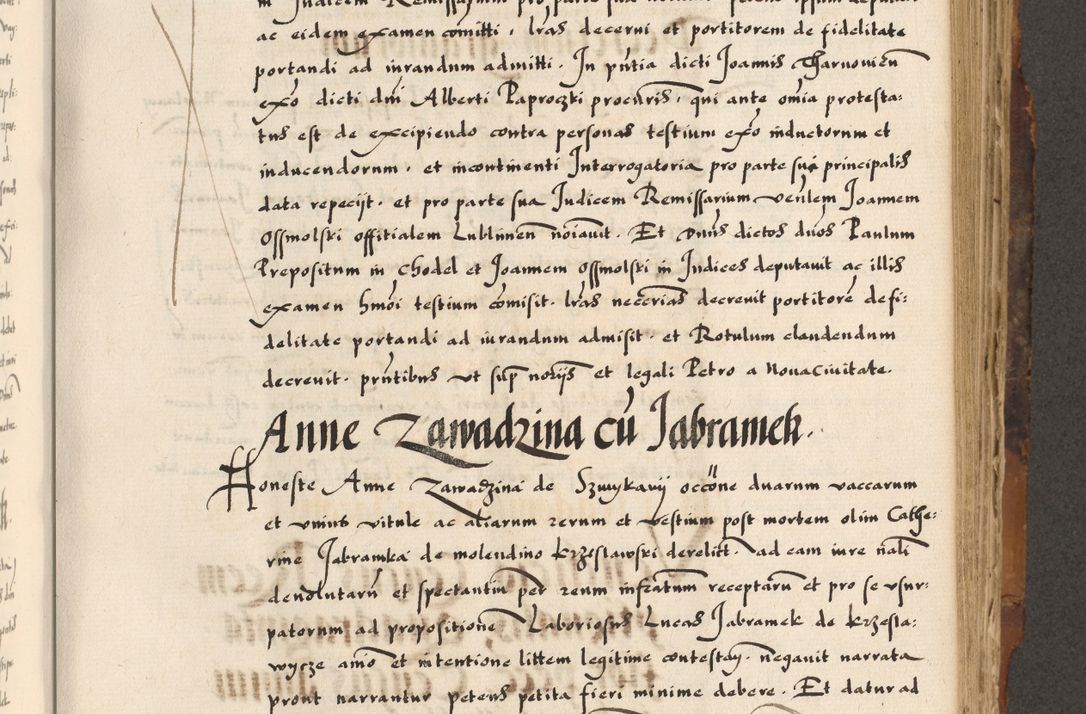 ac eidem examen comitti, lras decerni et portitorem de fidelitate
portandi ad iurandum admitti. In pntia dicti Joannis Tharnovien
exo dicti dni Alberti Paproczki procuris, qui ante omia protesta-
tus est de excipiendo contra personas testium exo inductorum et
inducendorum, et incontinenti Interrogatoria pro parte sua principalis
data repecijt. et pro parte sua Iudicem Remissarium venlem Joannem
Ossmolski offitialem Lublinen noiauit. Et dnus dictos duos Paulum
Prepositum in Chodel et Joannem Ossmolski in Iudices deputauit ac illis
examen hmoi testium comisit. lras neccrias decreuit portitore defi:
delitate portandi ad iurandum admisit. et Rotulum claudendum
decreuit. pntibus ut sup notijs et legali Petro a Nova Civitate.
Anne Zawadzina cu Jabramek.
Honeste Anne Zawadzina de Szwykavij occone duarum vaccarum
et vnius vitule ac aliarum rerum et vestium post mortem olim Cathe:
rine Jabramka de molendino Krzeslawski derelict. ad eam iure nali
deuolutaru et spectantiu per reum infratum receptaru et pro se usur-
patorum ad propositione Laboriosus Lucas Jabramek de Krzesla:
wycze anio et intentione littem legitime contestan. negauit narrata
prout narrantur petens petita fieri minime debere. Et datur ad